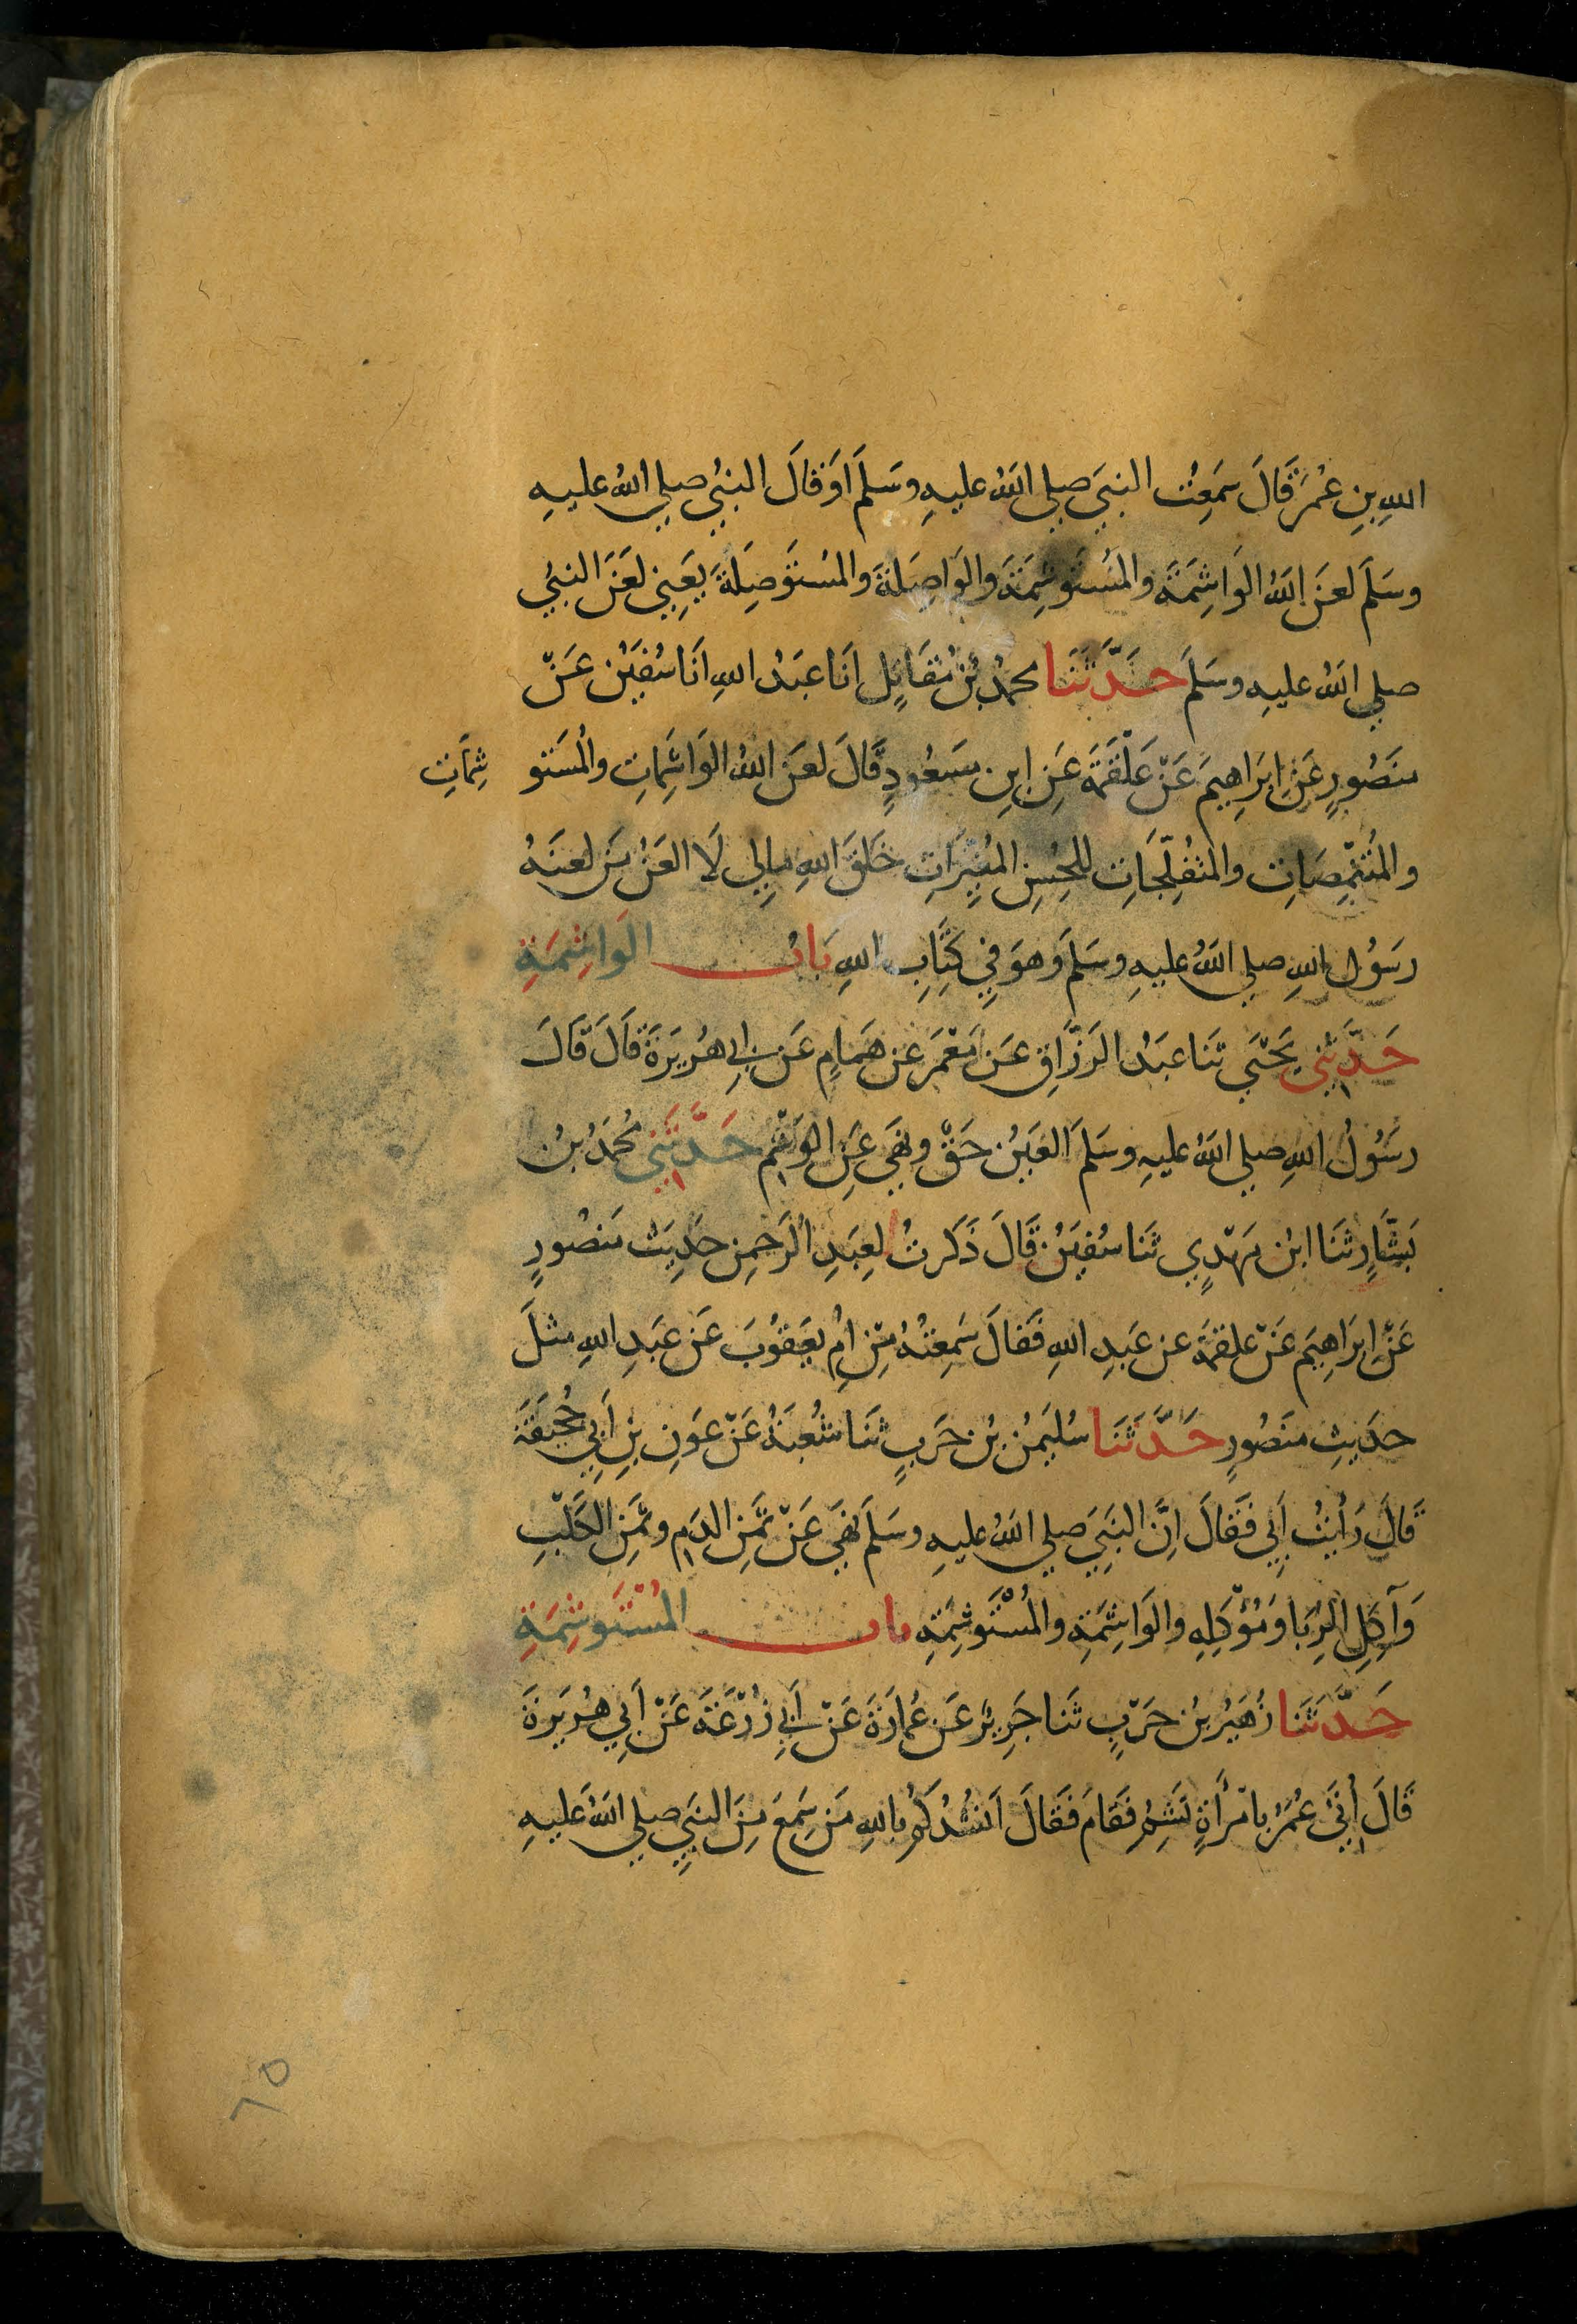 اللهِ بنِ عُمَرَ قَالَ سَمِعْتُ النبيَّ صلي اللهُ عليهِ وسَلمَ اَوْ قَالَ النبيُّ صلي اللهُ عليهِ
وسَلمَ لعَنَ اللهُ الوَاشِمَةَ والمُسْتَوشِمَةَ والوَاصِلةَ والمُسْتَوصِلَةَ يَعنِي لعَنَ النبيُّ
صلي اللهُ عليهِ وسَلمَ حَدَّثَنَا محمدُ بنُ مُقَاتِلٍ اَنَا عبدُ اللهِ اَنَا سُفيَنُ عَنْ
مَنصُورٍ عَنْ اِبرَاهِيمَ عَنْ عَلْقَمَةَ عَنِ ابنِ مَسعُودٍ قَالَ لعَنَ اللهُ الوَاشِمَاتِ والْمُسْتَو شِمَاتِ
والمُتَنَمِّصَاتِ والمُتَفَلِّجَاتِ للحُسنِ المُغَيِّرَاتِ خَلقَ اللهِ مالِي لَا العَنُ مَن لعنَهُ
رسُولُ اللهِ صلي اللهُ عليهِ وسَلمَ وَهوَ فِي كِتَابِ اللهِ بَابُ الوَاشِمَةِ
حَدَّثَنِي يَحْيَي ثَنا عبدُ الرَزَّاقِ عَن مَعْمَرٍ عَن هَمامٍ عَن اَبِي هُرَيرَةَ قَالَ قَالَ
رسُولُ اللهِ صلي اللهُ عليهِ وسَلمَ العَينُ حَقٌّ ونَهَي عَنِ الوَشْمِ حَدَّثَنِي مُحَمَدُ بنُ
بَشَّارٍ ثَنَا ابنُ مَهْدِي ثَنا سُفيَنُ قَالَ ذَكَرتُ لِعبدِ الرَحمنِ حَدِيثَ مَنصُورٍ
عَنْ اِبرَاهِيمَ عَنْ علقمَةَ عن عَبدِ اللهِ فَقَالَ سَمِعتُهُ مِنْ اُمِ يعَقُوبَ عَن عَبدِ اللهِ مثلَ
حدَيثِ مَنصُورٍ حَدَّثَنَا سُليَمنُ بنُ حَربٍ ثَنا شُعبَةُ عَنْ عَونِ بنِ اَبِي جُحَيفَةَ
قَالَ رَاَيتُ اَبِي فَقَالَ اِنَّ النَبِيَ صلي اللهُ عليهِ وسَلمَ نَهَي عَنْ ثَمَنِ الدَمِ وثَمَنِ الكَلْبِ
وَآكِلِ الرِبَا وَمُؤْكِلِهِ والوَاشِمَةِ والمُسْتَوشِمَةِ باب المُسْتَوشِمَةِ
حَدَّثَنَا زُهَيرُ بنُ حَرْبٍ ثَنا جَرِيرٌ عَن عُمارَةَ عَنْ اَبِي زُرْعَةَ عَنْ اَبِي هُرَيرَةَ
قَالَ اُتِيَ عُمَرُ بامْرأَةٍ تَشِمُ فَقَامَ فَقَالَ اَنشُدُكُمْ باللهِ مَن سَمِعَ مِنَ النبيِّ صلي اللهُ عليهِ
٦٥